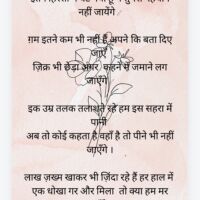 नहीं जायेंगे
ग़म इतने कम भी नहीं है अपने कि बता दिए
जाएँ
ज़िक्र भी छेड़ा अगर कहने में जमाने लग
जाएँगे
इक उम्र तलक तलाशते रहे हम इस सहरा में
पानी
अब तो कोई कहता है वहाँ है तो पीने भी नहीं
जाएँगे ।
लाख ज़ख्म खाकर भी ज़िंदा रहे हैं हर हाल में
एक धोखा गर और मिला तो क्या हम मर